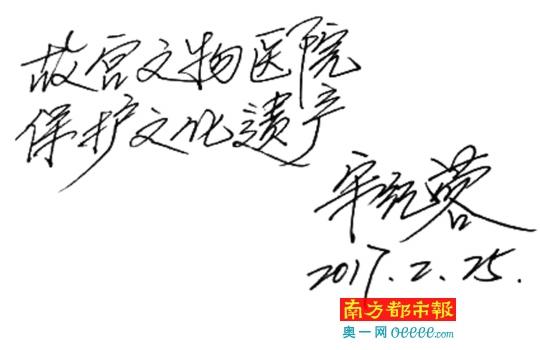 故宫文物医院
保护文化遗产
宋纪蓉
2017.2.25.
南方都市報
奥一网oeeee.com